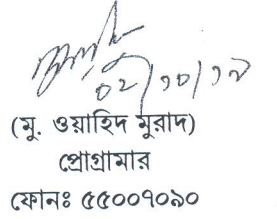 ০২/১০/১৭
(মু. ওয়াহিদ মুরাদ)
প্রোগ্রামার
ফোনঃ ৫৫০০৭০৯০